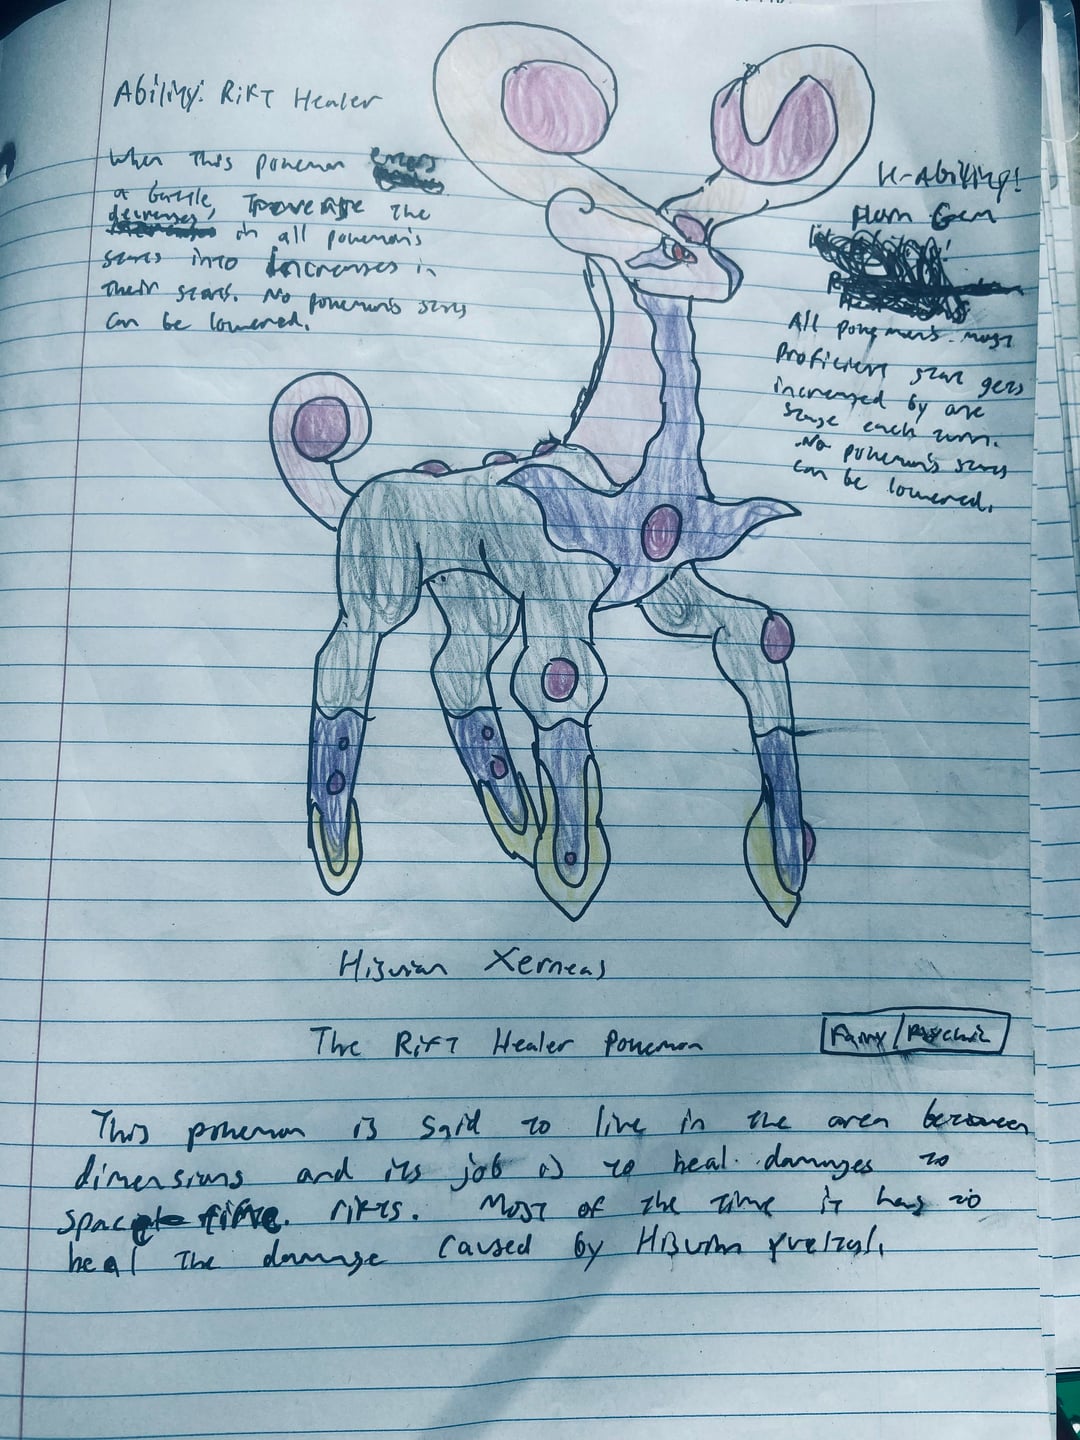 Ability: Rift Healer
When this pokemon
a battle, the
decreases in all pokemon's
stats into increases in
their stats. No pokemon's stats
can be lowered.
H-Ability:
Gem
All pokemon's most
proficient stat gets
increased by one
stage each turn.
No pokemon's stats
can be lowered.
Hisuian Xerneas
The Rift Healer Pokemon
Fairy/Psychic
This pokemon is said to live in the area between
dimensions and its job is to heal damages to
space rifts. Most of the time it has to
heal the damage caused by Hisuian Yveltal.